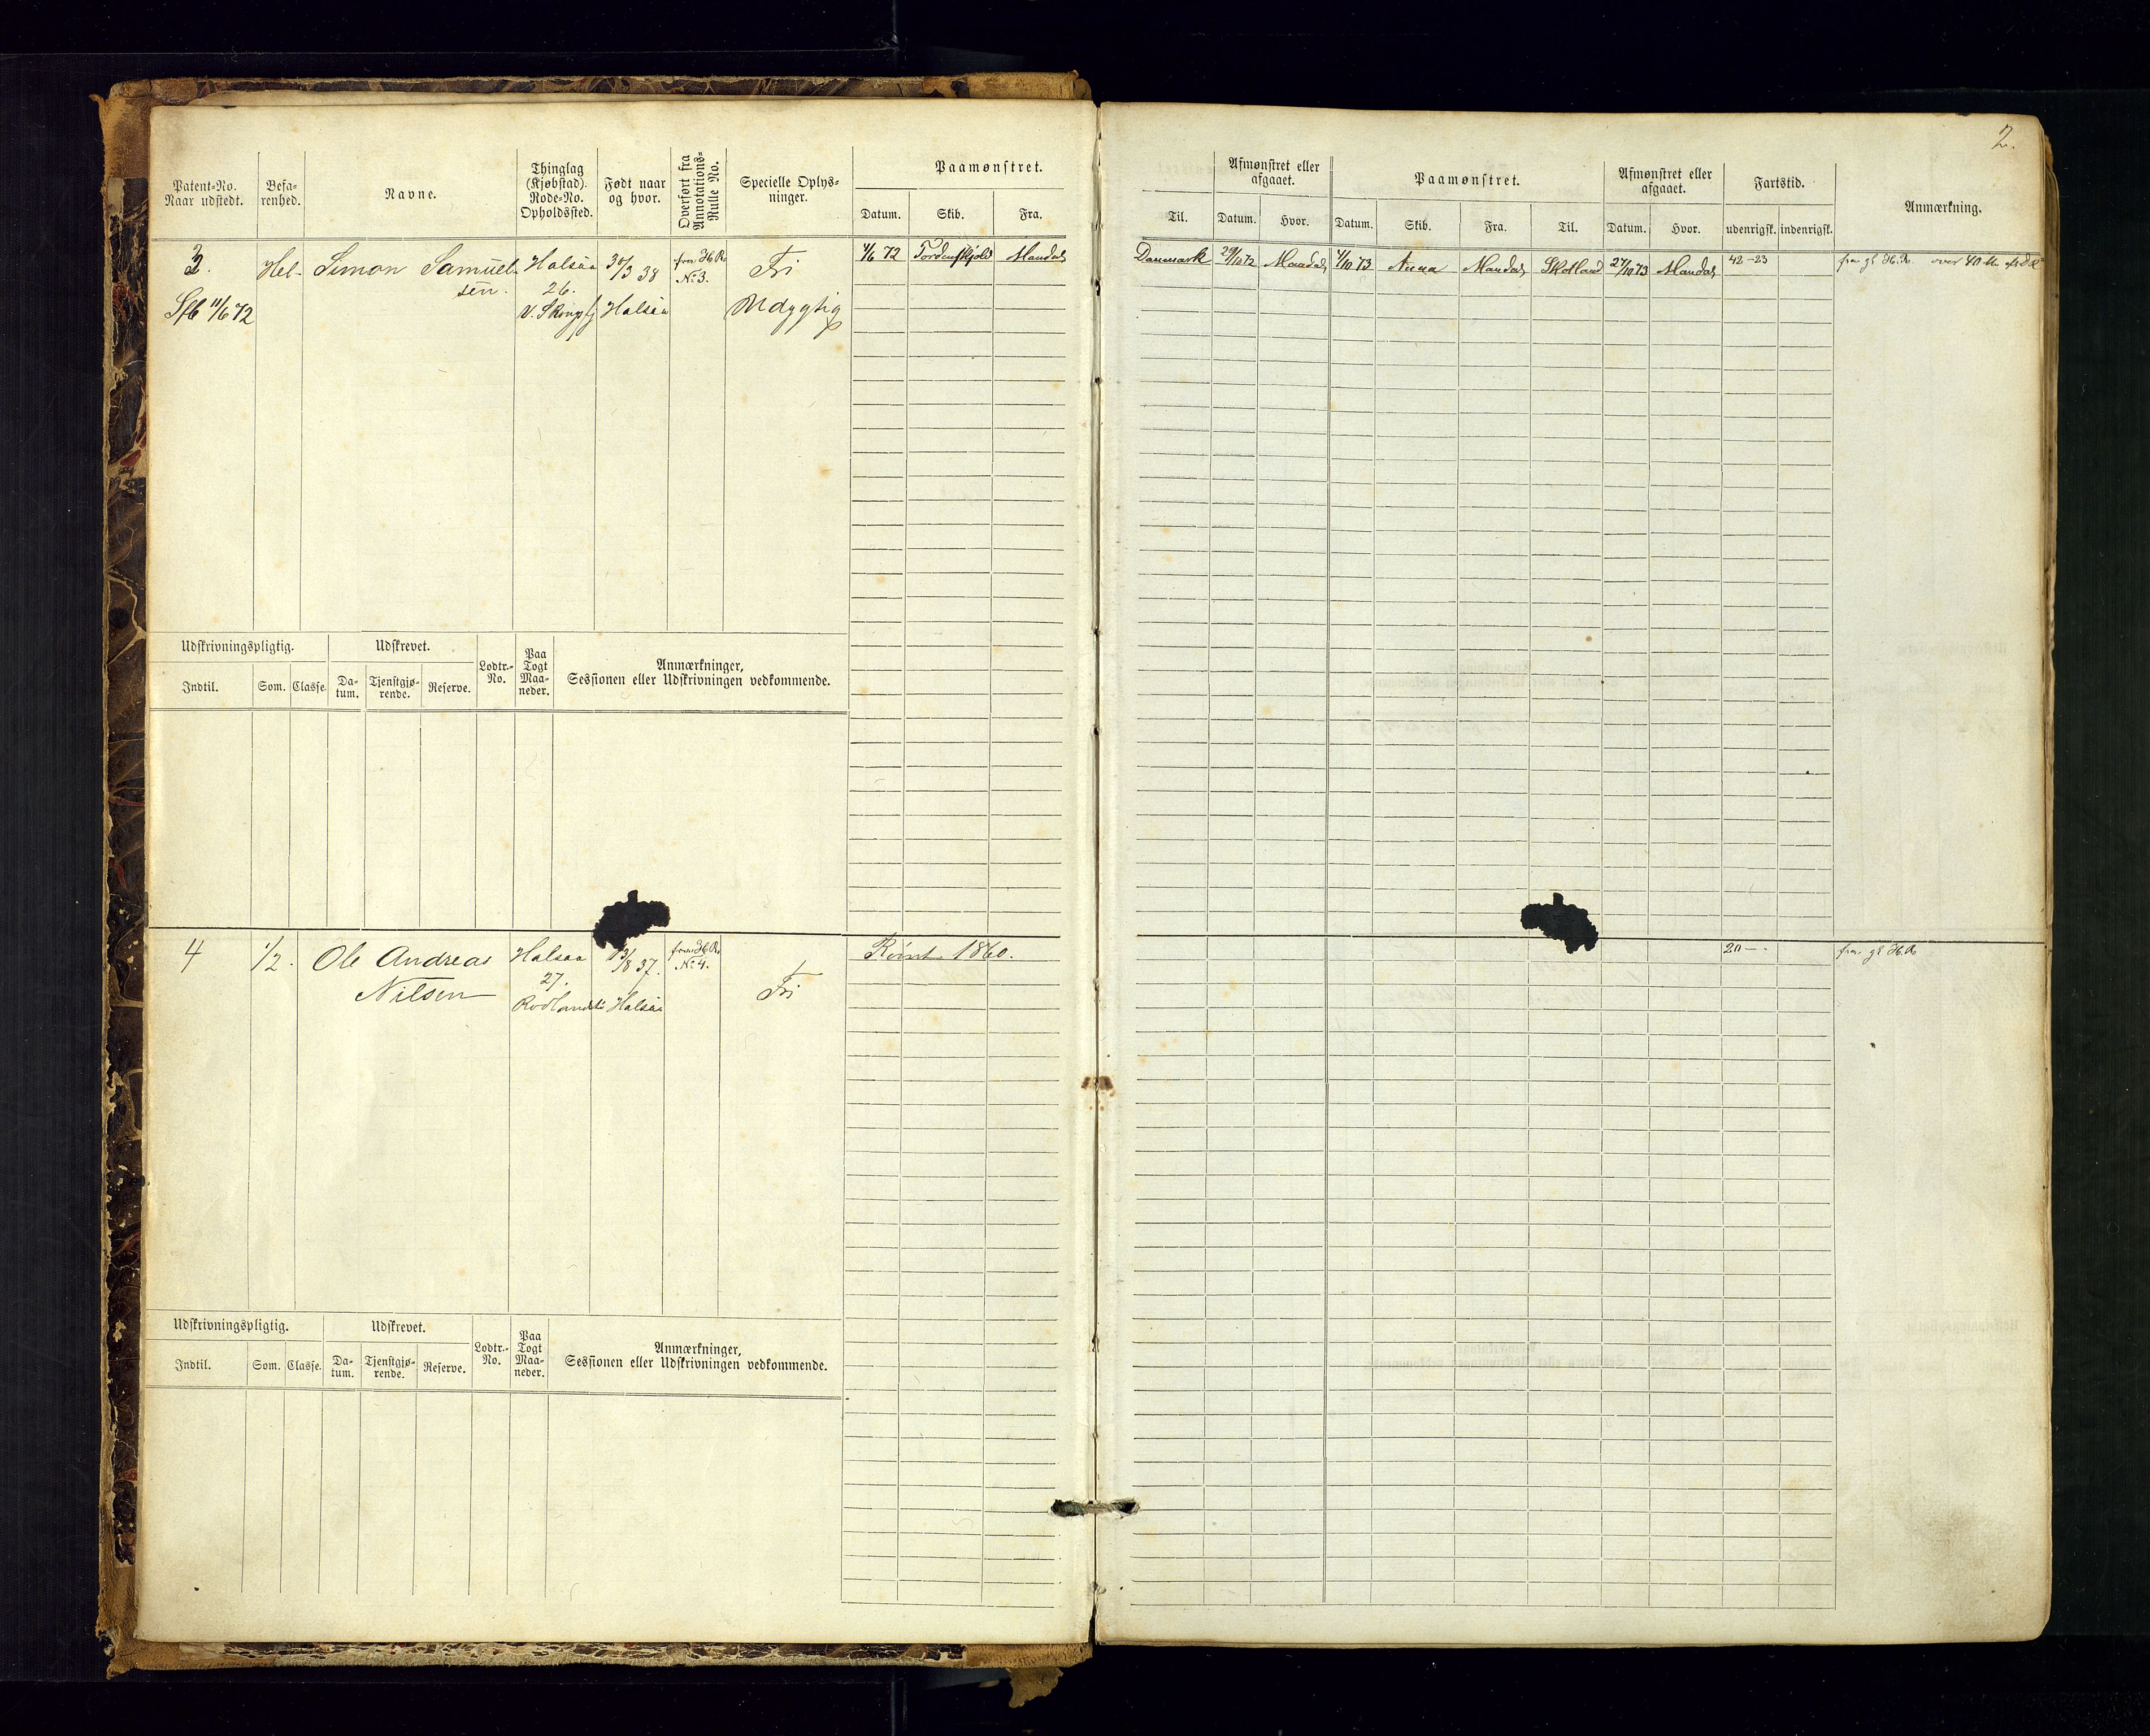 2.
Patent-No. Naar udstedt.
Befarenhed.
Navne.
Thinglag (Kjøbstad). Rode-No. Opholdssted.
Født naar og hvor.
Overført fra Annotations-Rulle No.
Specielle Oplysninger.
Paamønstret.
Datum. Skib. Fra.
Til.
Afmønstret eller afgaaet.
Datum. Hvor.
Paamønstret.
Datum. Skib. Fra. Til.
Afmønstret eller afgaaet.
Datum. Hvor.
Fartstid.
udenrigsk. indenrigsk.
Anmærkning.
3. Hel- Simon Samuel- Halsaa 30/3 38 fra H.R. Fri
sen. 26. No 3.
11/6 72 Halsaa Udygtig
4/6 72 Tordenskjold Mandal Danmark 29/10 72 Mandal 4/10 73 Anna Mandal Skotland 27/10 73 Mandal 42-23 fra gl H.R. over 40
Udskrivningspligtig. Udskrevet. Lodtr.-No. Paa Togt Maaneder. Anmærkninger, Sessionen eller Udskrivningen vedkommende.
Indtil. Som. Classe. Datum. Tjenstgjørende. Reserve.
4 1/2. Ole Andreas Halsaa 13/8 37. fra H.R. Fri
Nilsen 27. No 4.
Halsaa
1860. 20 - fra gl H.R.
Udskrivningspligtig. Udskrevet. Lodtr.-No. Paa Togt Maaneder. Anmærkninger, Sessionen eller Udskrivningen vedkommende.
Indtil. Som. Classe. Datum. Tjenstgjørende. Reserve.